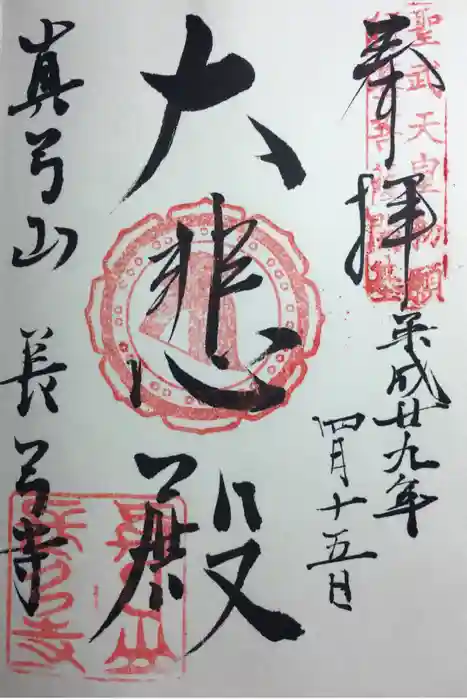 聖武天皇勅願
奉拝
平成廿九年
四月十五日
大悲殿
真弓山 長弓寺